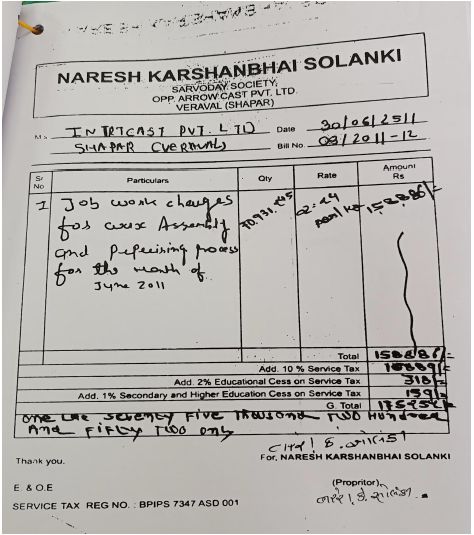 NARESH KARSHANBHAI SOLANKI
SARVODAY SOCIETY,
OPP. ARROW CAST PVT. LTD.
VERAVAL (SHAPAR)
M/s INTRTCAST PVT. LTD Date 30/06/2511
SHAPAR (VERAVAL) Bill No. 03/2011-12
Sr No Particulars Qty Rate Amount Rs
1 Job work charges 70.931.145 02=24 158886/=
for wax Assembly per/kg
and Prepcising process
for the month of
June 2011
Total 158886/=
Add. 10 % Service Tax 15889/=
Add. 2% Educational Cess on Service Tax 318/=
Add. 1% Secondary and Higher Education Cess on Service Tax 159/=
G. Total 175252/=
one lac seventy Five Thousand Two Hundred
And Fifty Two only
Thank you. For, NARESH KARSHANBHAI SOLANKI
E. & O.E (Propritor)
SERVICE TAX REG NO. : BPIPS 7347 ASD 001